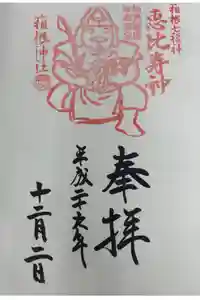 箱根七福神
恵比寿神
奉拝
箱根神社
平成二十九年
十二月二日